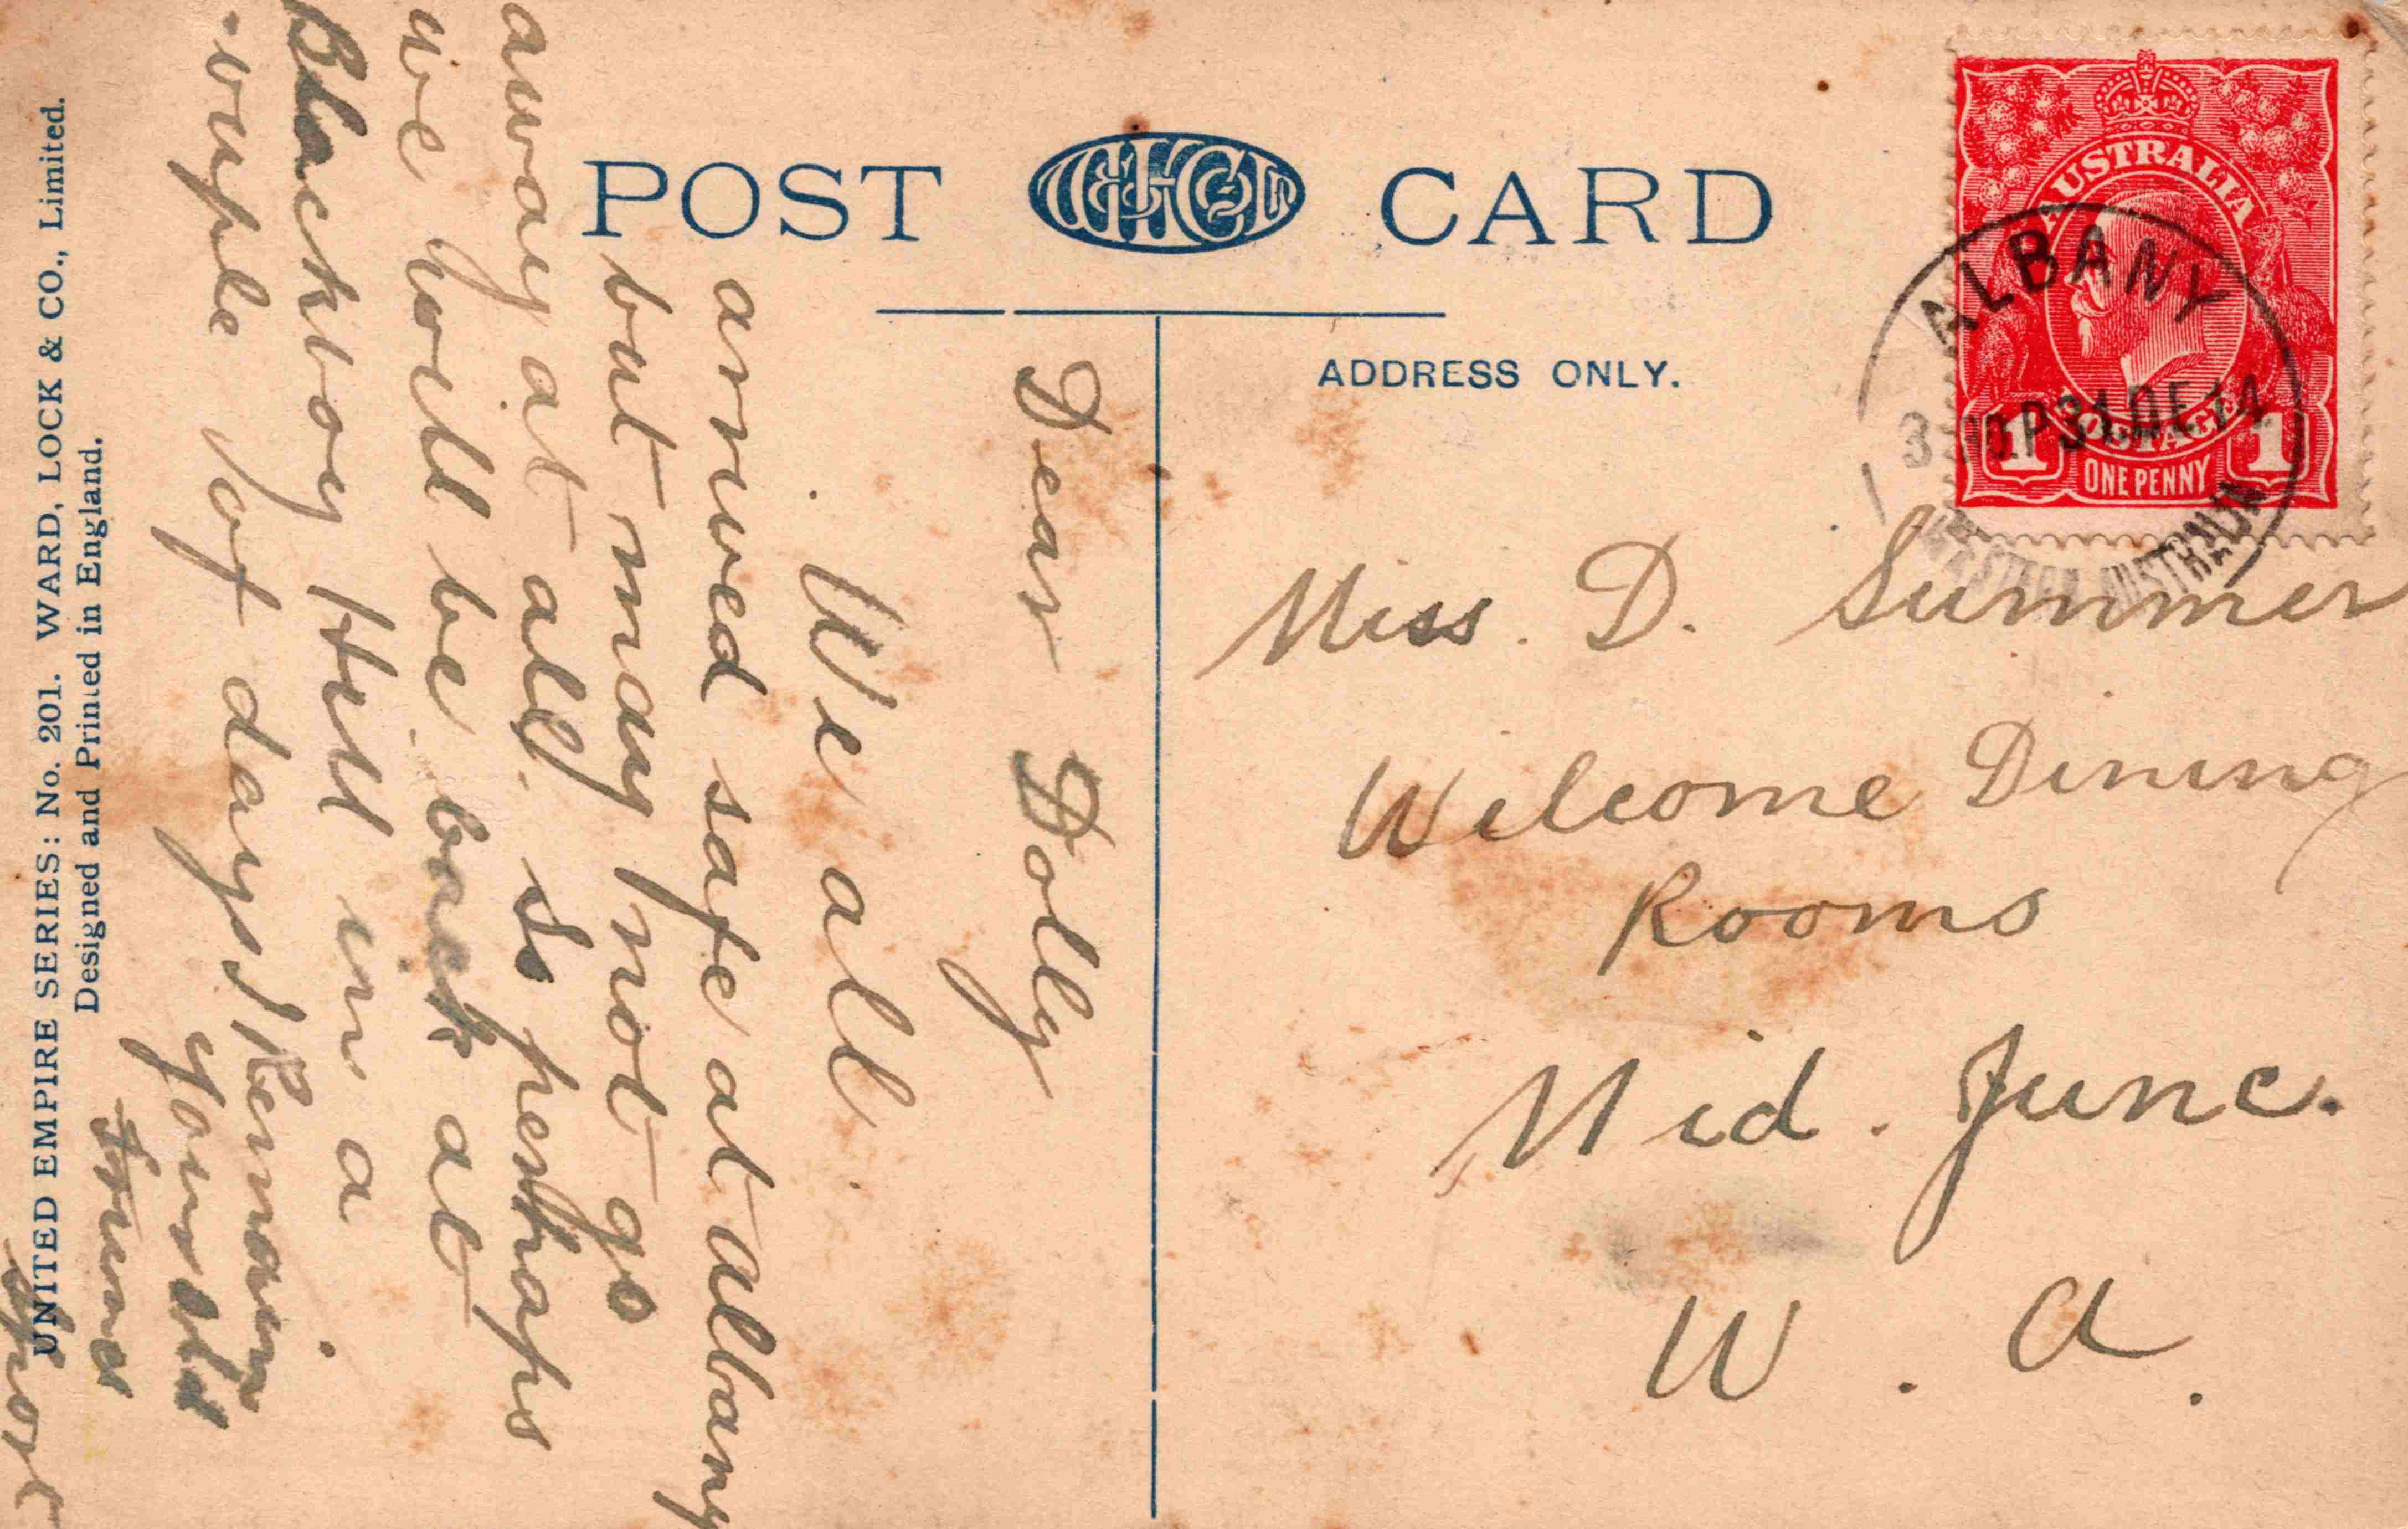 POST CARD
ADDRESS ONLY.
AUSTRALIA
POSTAGE
1 ONE PENNY 1
ALBANY
31 DE 14
WESTERN AUSTRALIA
Miss. D. Summer
Welcome Dining
Rooms
Mid. Junc.
W. A.
Dear Dolly
We all
arrived safe at albany
but may not go
away at all. So perhaps
we will be back at
Blackboy Hill in a
couple of days I Remain
your old
Sport
UNITED EMPIRE SERIES: No. 201. WARD, LOCK & CO., Limited.
Designed and Printed in England.